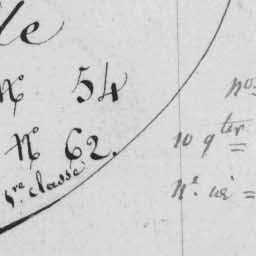 le
N° 54
N° 62.
1re classe
nos
10 qter